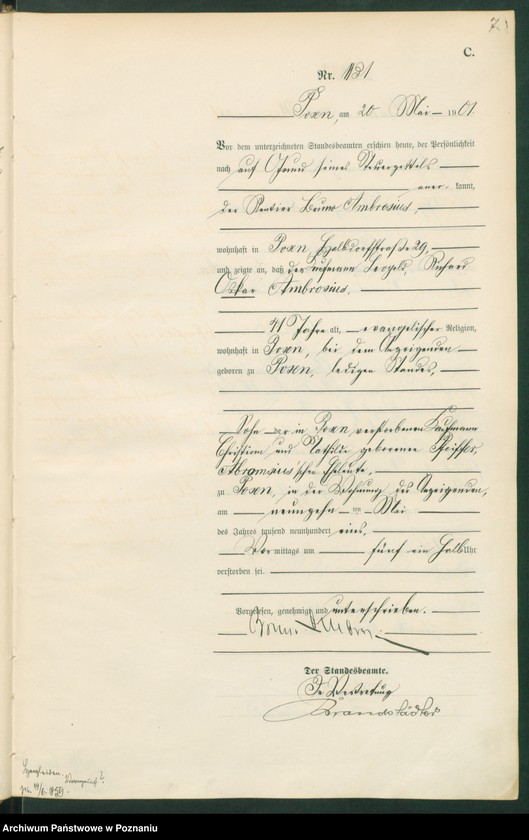 C.
Nr. 131
Posen, am 20 Mai 1901.
Vor dem unterzeichneten Standesbeamten erschien heute, der Persönlichkeit
nach auf Grund seines Steuerzettels
anerkannt,
der Rentier Bruno Ambrosius,
wohnhaft in Posen, Halbdorfstraße 29,
und zeigte an, daß der Kaufmann Leopold Richard
Oskar Ambrosius,
41 Jahre alt, evangelischer Religion,
wohnhaft in Posen, bei dem Anzeigenden
geboren zu Posen, ledigen Standes,
Sohn der in Posen verstorbenen Kaufmann
Christian und Mathilde geborenen
Ambrosius'schen Eheleute,
zu Posen, in der Wohnung des Anzeigenden,
am neunzehn ten Mai
des Jahres tausend neunhundert eins,
Vormittags um fünf ein halb Uhr
verstorben sei.
Vorgelesen, genehmigt und unterschrieben.
Bruno Ambrosius
Der Standesbeamte.
In Vertretung
Brandstädter
Archiwum Państwowe w Poznaniu